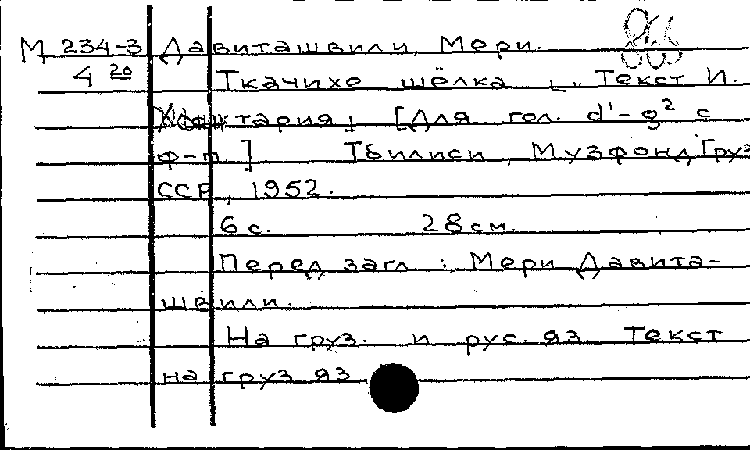 М 234-3 Давиташвили, Мери.
4 20 Ткачихе шёлка [. Текст И.
тария] [Для гол. d¹-g² с
ф-п] Тбилиси, Музфонд Груз
ССР, 1952.
6 с. 28 см.
Перед загл : Мери Давита-
швили.
На груз. и рус. яз Текст
на груз яз